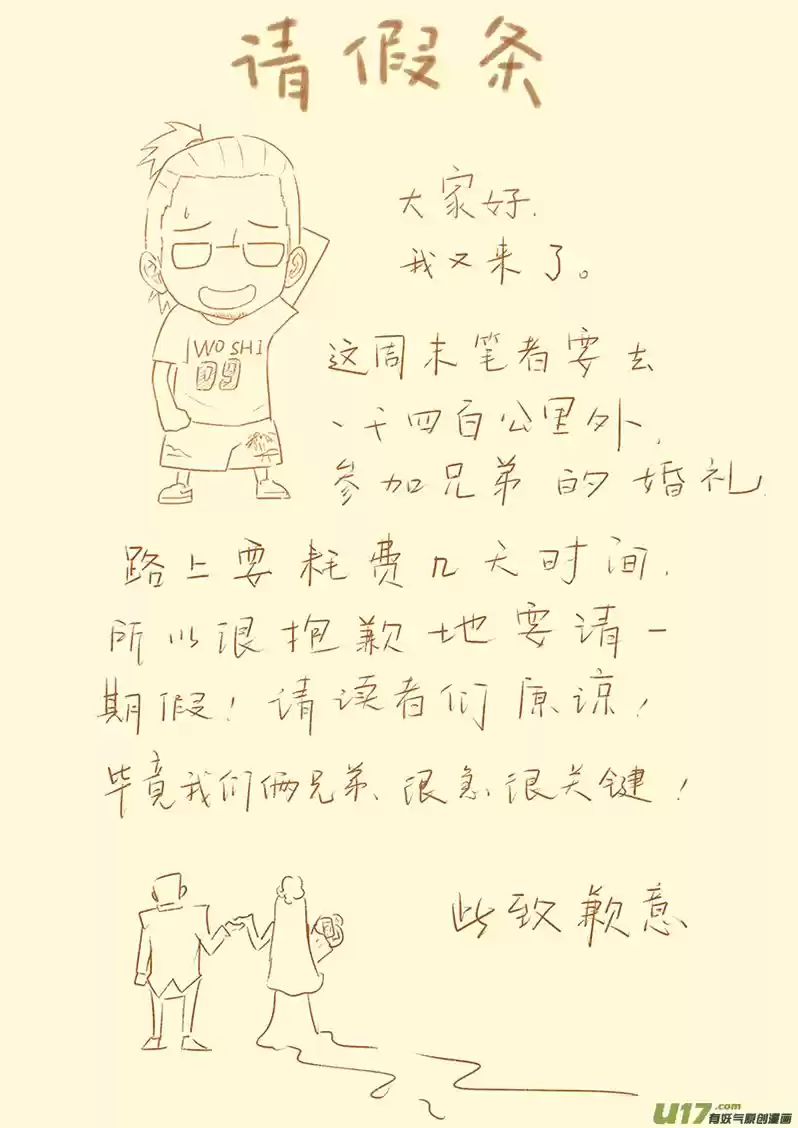 请假条
大家好.
我又来了。
WO SHI
09
这周末笔者要去
一千四百公里外,
参加兄弟的婚礼.
路上要耗费几天时间.
所以很抱歉地要请一
期假!请读者们原谅!
毕竟我们俩兄弟、很急很关键!
此致歉意
U17.com
有妖气原创漫画